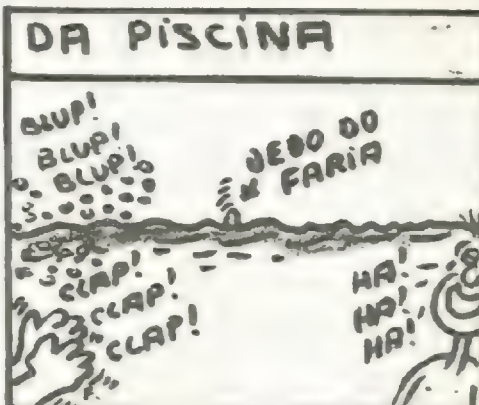 DA PiSCiNA
BLUP!
BLUP!
BLUP!
DEDO DO
FARiA
CLAP!
CLAP!
CLAP!
HA!
HA!
HA!